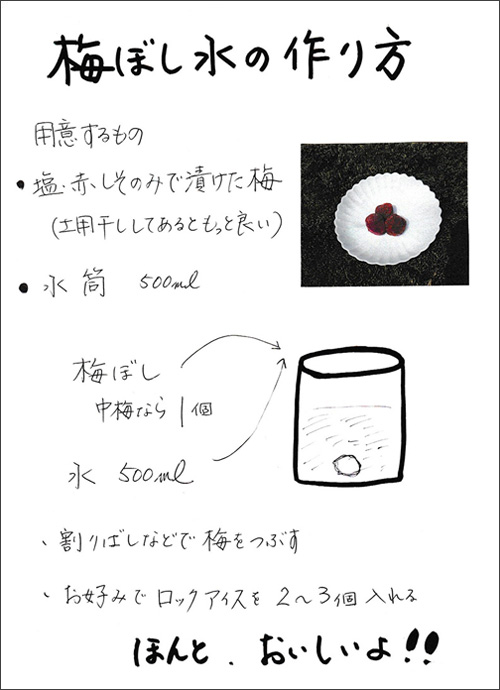 梅ぼし水の作り方
用意するもの
● 塩・赤しそのみで漬けた梅
(土用干ししてあるともっと良い)
● 水筒 500ml
梅ぼし
中梅なら1個
水 500ml
、割りばしなどで梅をつぶす
、お好みでロックアイスを2〜3個入れる
ほんと、おいしいよ!!